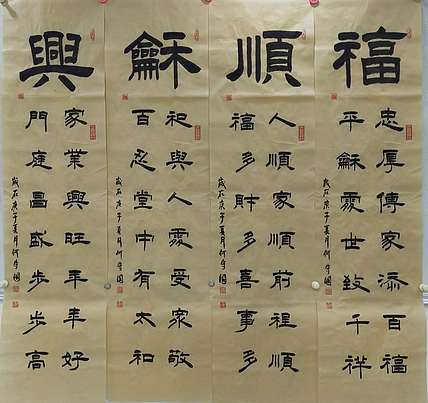 福
忠厚傳家添百福
平龢處世致千祥
歲在庚子夏月何守國
順
人順家順前程順
福多財多喜事多
歲在庚子夏月何守國
龢
礼與人處受眾敬
百忍堂中有太和
歲在庚子夏月何守國
興
家業興旺年年好
門庭昌盛步步高
歲在庚子夏月何守國